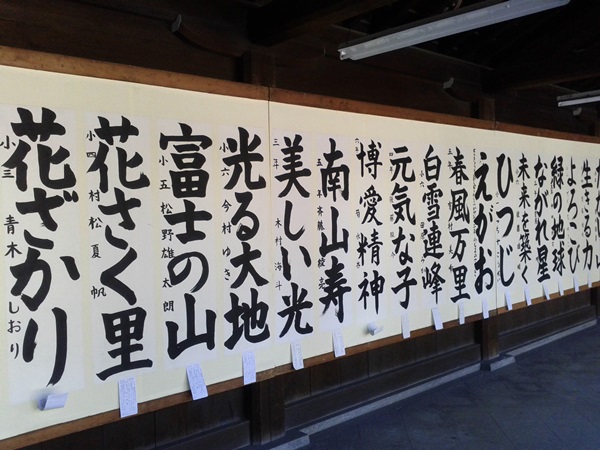 花ざかり
小三 青木しおり
花さく里
小四 村松夏帆
富士の山
小五 松野雄太朗
光る大地
小六 今村ゆき
美しい光
三年 木村海斗
南山寿
五年 斉藤
博愛精神
元気な子
白雪連峰
春風万里
えがお
ひつじ
未来を築く
ながれ星
緑の地球
よろこび
生きる力